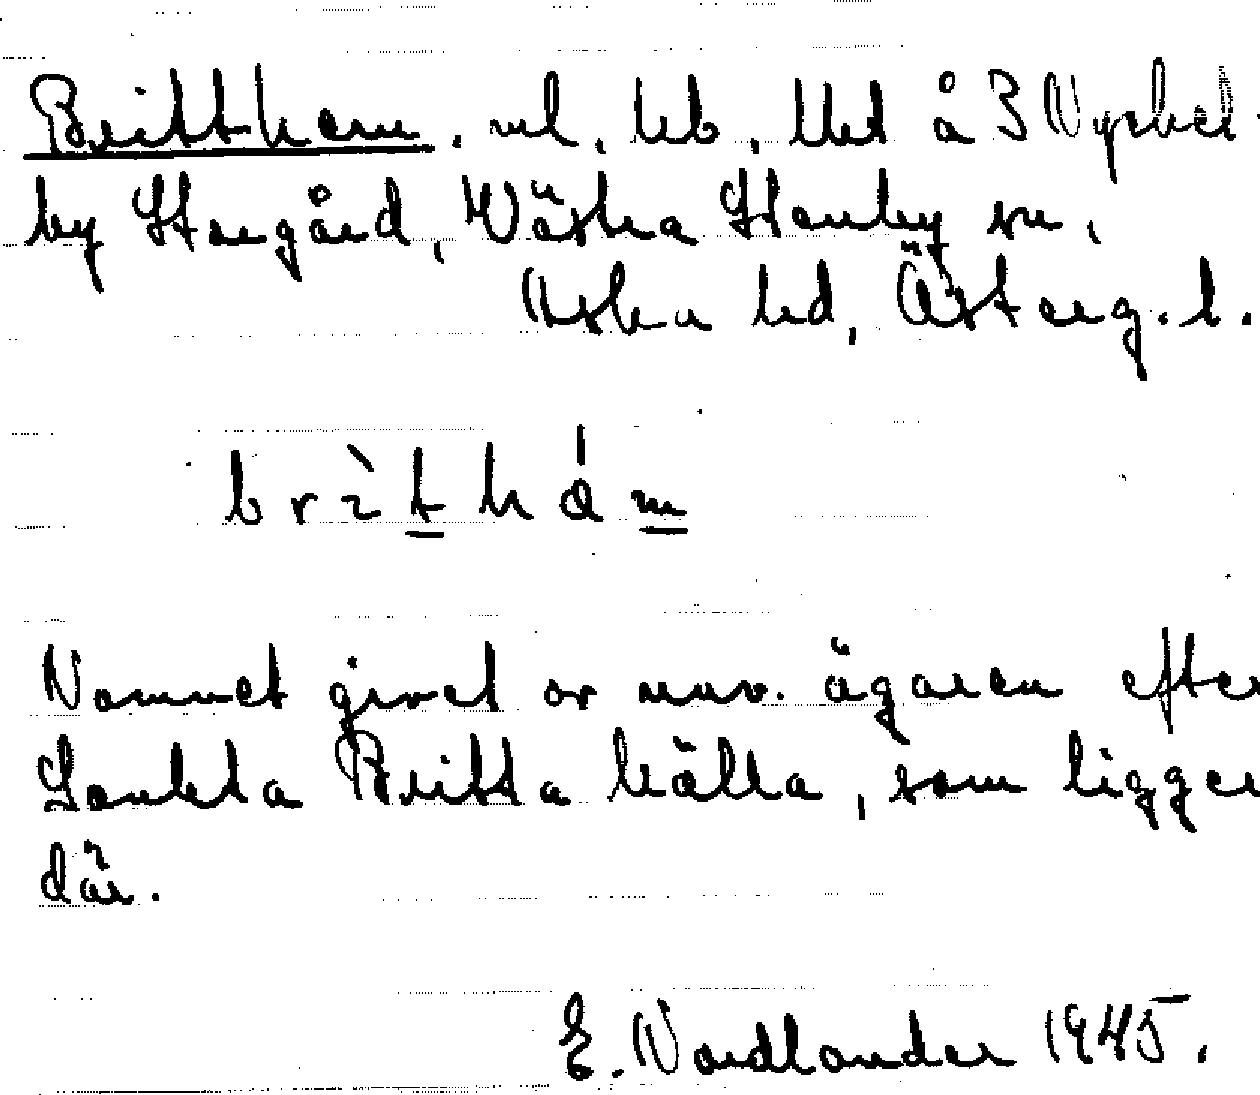 Brittham. nl, lb, lht å 3 Nyckel-
by Storgård, Västra Stenby sn,
Aska hd, Österg. l.
brìthám
Namnet givet av nuv. ägaren efter
Sankta Britta källa, som ligger
där.
E. Nordlander 1945.